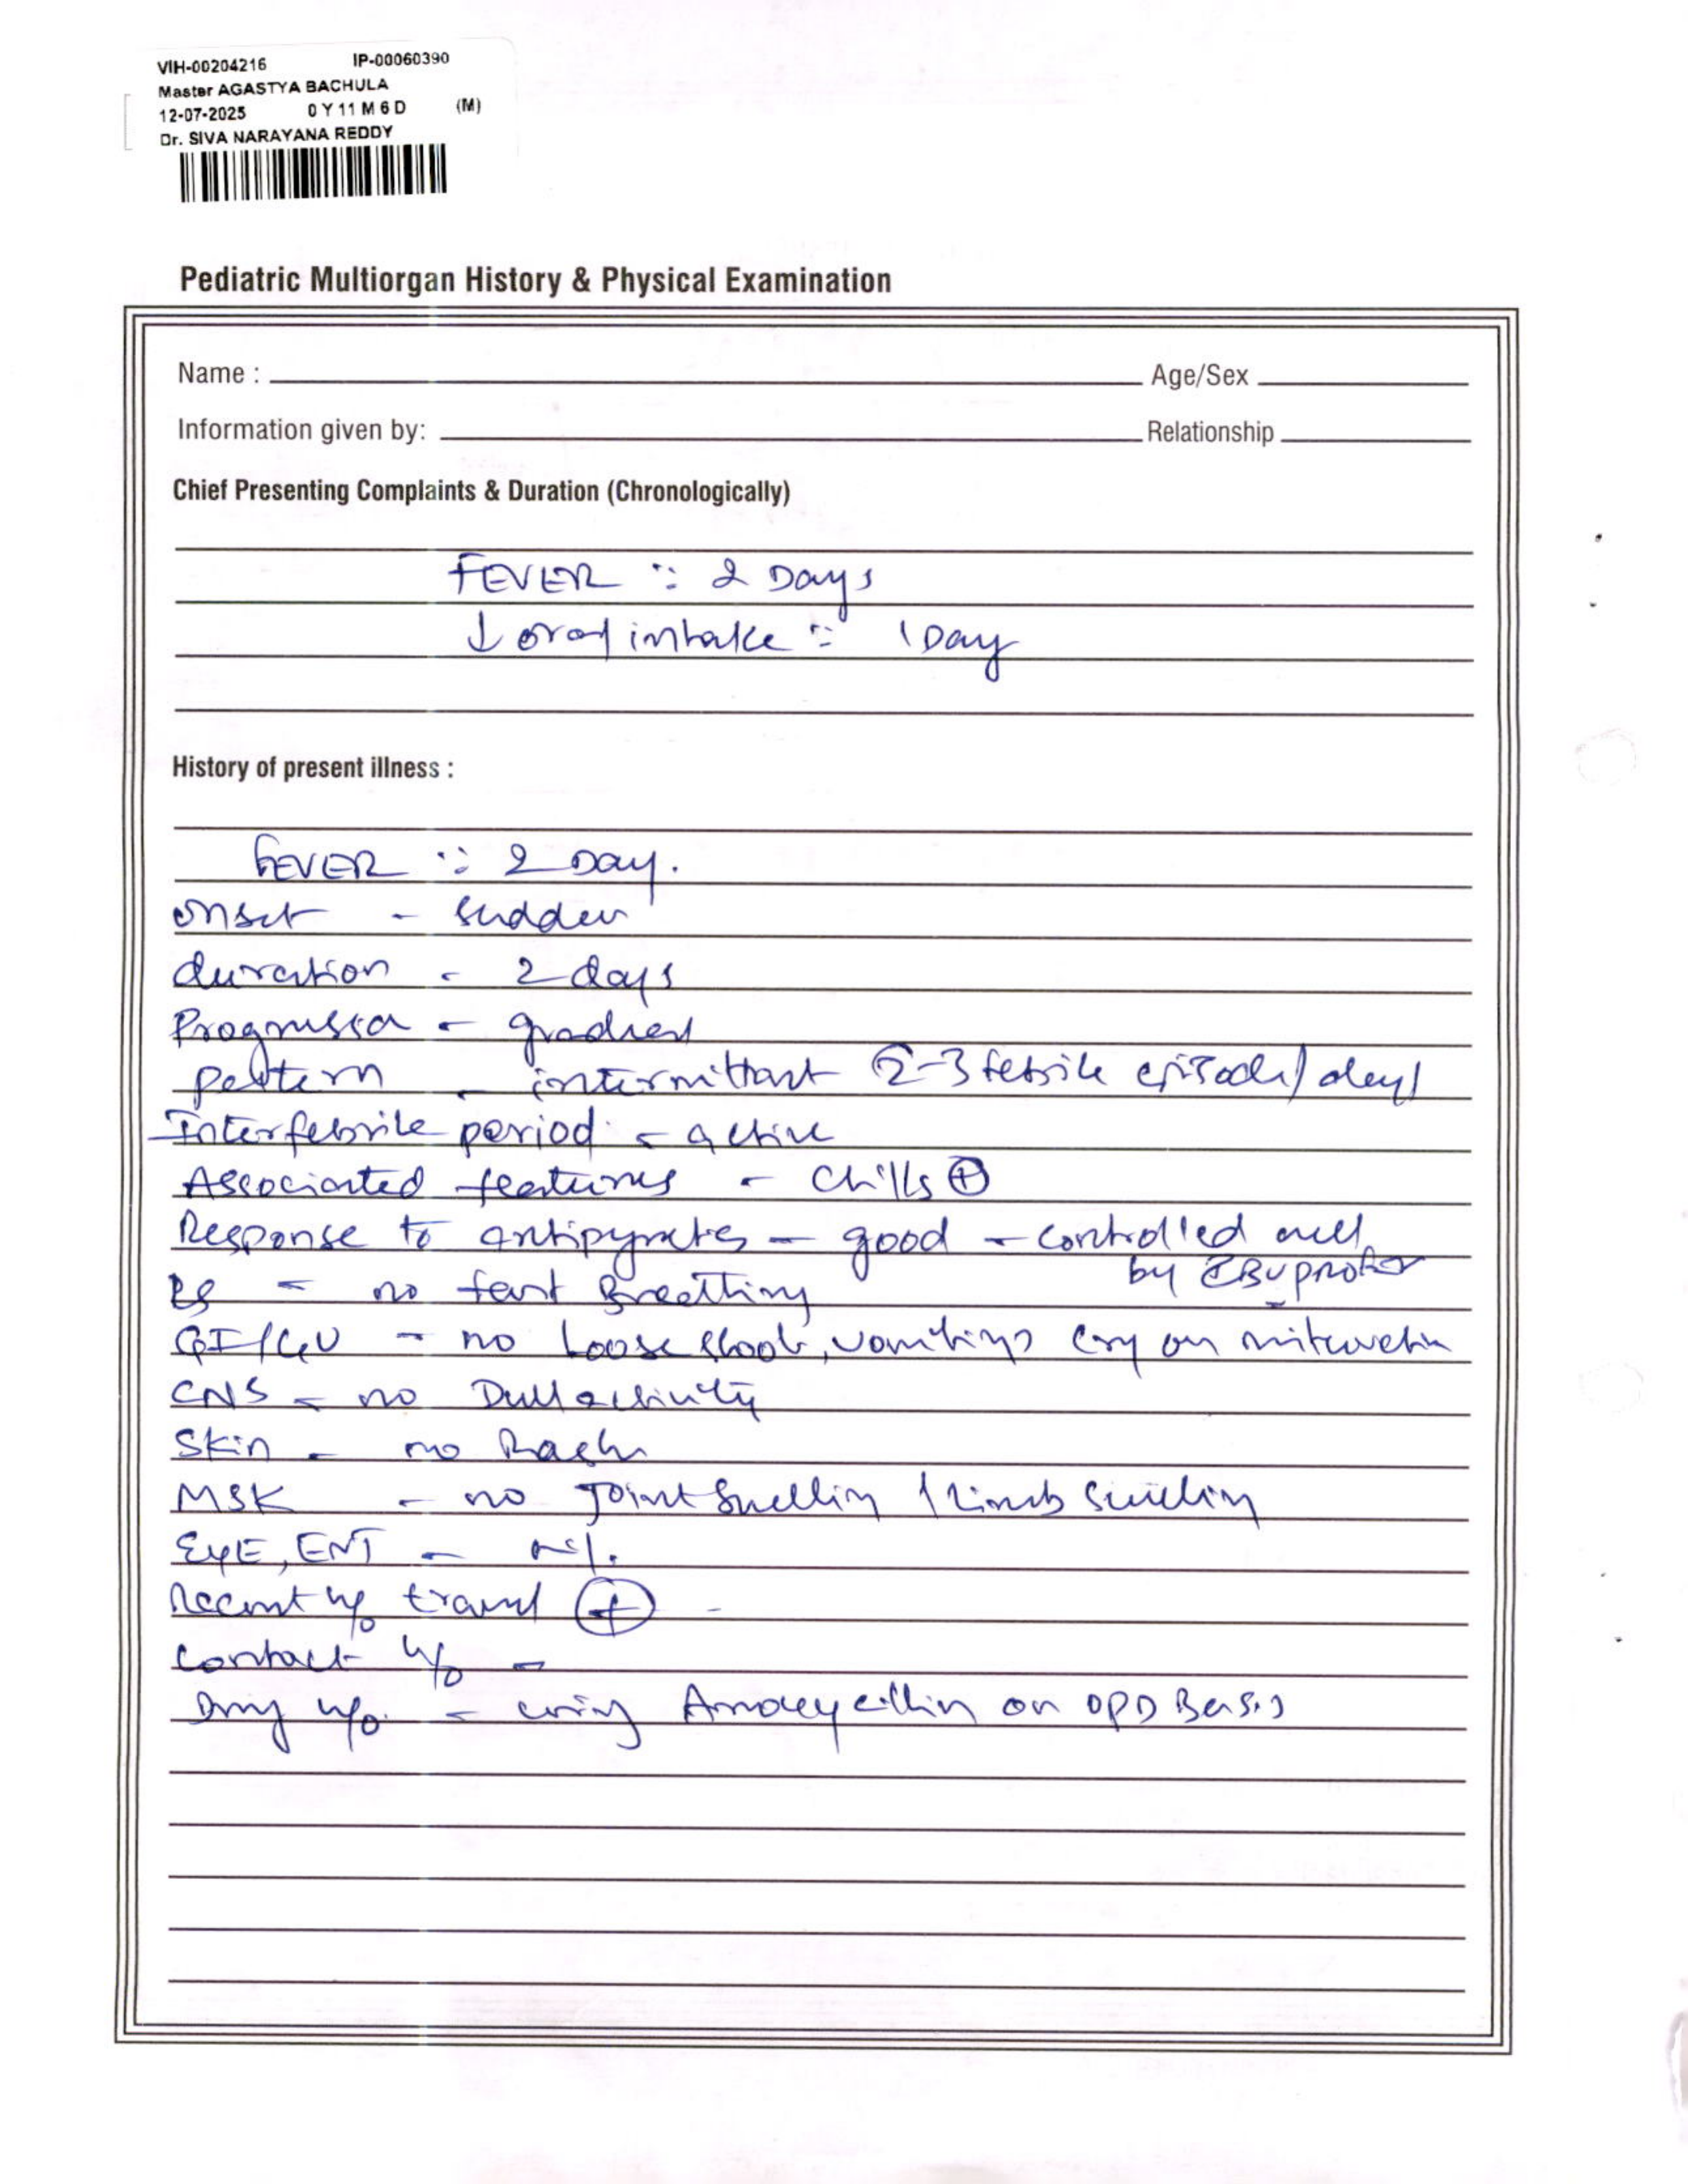 VIH-00204216 IP-00060390
Master AGASTYA BACHULA
12-07-2025 0 Y 11 M 6 D (M)
Dr. SIVA NARAYANA REDDY
Pediatric Multiorgan History & Physical Examination
Name : Age/Sex
Information given by: Relationship
Chief Presenting Complaints & Duration (Chronologically)
FEVER : 2 Days
↓ oral intake : 1 Day
History of present illness :
FEVER : 2 Day.
onset - sudden
duration - 2 days
- gradual
pattern - intermittant 2-3 febrile episode/day
Interfebrile period - active
Associated features - chills ⊕
Response to - good - controlled well
by
RS - no fast Breathing
GI/GU - no Loose stools, vomitings cry on
CNS - no Dull activity
Skin - no Rash
MSK - no Joint Swelling / Limb Swelling
EYE, ENT -
Recent h/o travel ⊕ -
contact h/o -
Drug h/o - using on OPD Basis